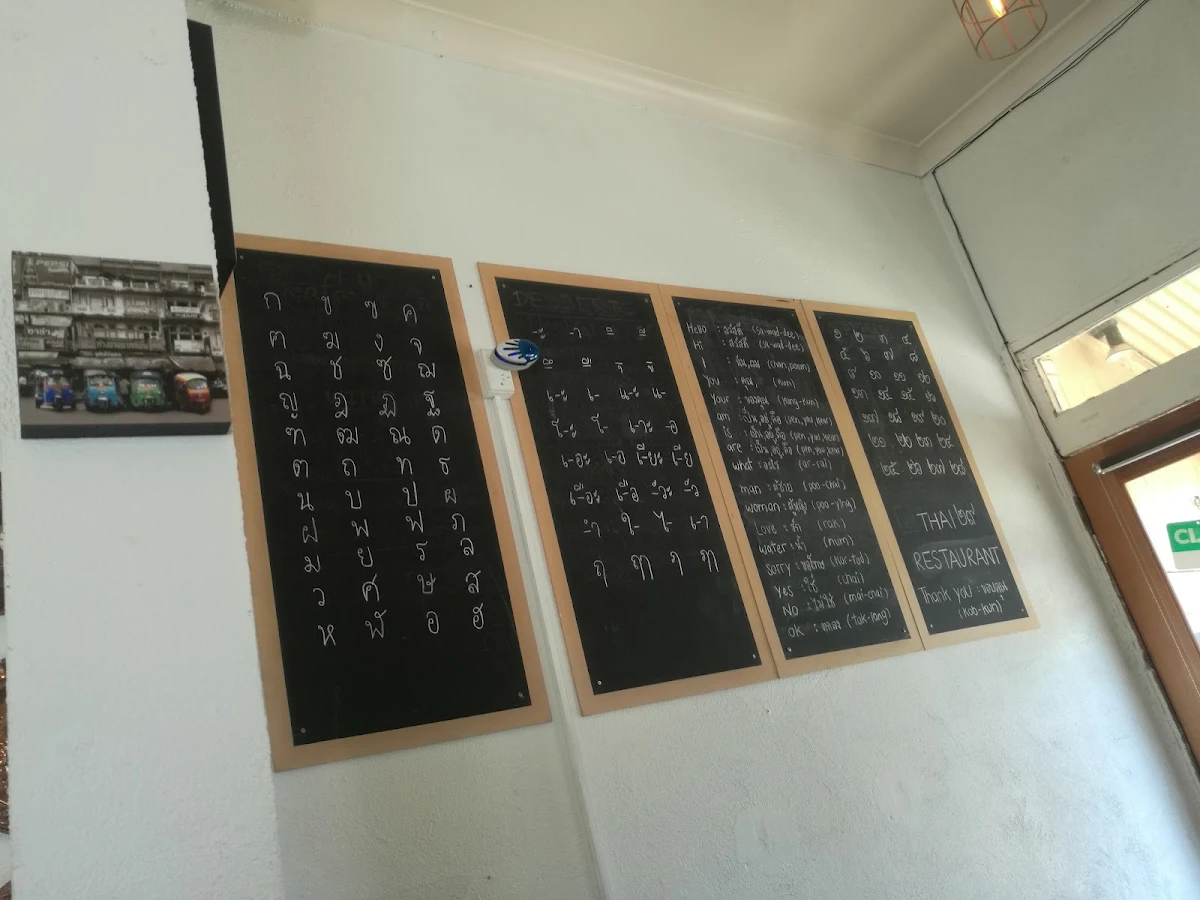 PEPSI
ก ข ฃ ค
ฅ ฆ ง จ
ฉ ช ซ ฌ
ญ ฎ ฏ ฐ
ฑ ฒ ณ ด
ต ถ ท ธ
น บ ป ผ
ฝ พ ฟ ภ
ม ย ร ล
ว ศ ษ ส
ห ฬ อ ฮ
-ะ -า -ิ -ี
-ึ -ื -ุ -ู
เ-ะ เ- แ-ะ แ-
โ-ะ โ- เ-าะ -อ
เ-อะ เ-อ เ-ียะ เ-ีย
เ-ือะ เ-ือ -ัวะ -ัว
-ำ ใ- ไ- เ-า
ฤ ฤๅ ฦ ฦๅ
Hello : สวัสดี (sa-wad-dee)
Hi : สวัสดี (sa-wad-dee)
I : ฉัน, ผม (chan, poom)
You : คุณ (kun)
Your : ของคุณ (kong-kun)
am : เป็น, อยู่, คือ (pen, you, keur)
is : เป็น, อยู่, คือ (pen, you, keur)
are : เป็น, อยู่, คือ (pen, you, keur)
what : อะไร (ar-rai)
man : ผู้ชาย (poo-chai)
woman : ผู้หญิง (poo-ying)
Love : รัก (rak)
water : น้ำ (num)
Sorry : ขอโทษ (kor-tod)
Yes : ใช่ (chai)
No : ไม่ใช่ (mai-chai)
OK : ตกลง (tok-long)
๑ ๒ ๓ ๔
๕ ๖ ๗ ๘
๙ ๑๐ ๑๑ ๑๒
๑๓ ๑๔ ๑๕ ๑๖
๑๗ ๑๘ ๑๙ ๒๐
๒๑ ๒๒ ๒๓ ๒๔
๒๕ ๒๖ ๒๗ ๒๘
THAI ๒๙
RESTAURANT
Thank you : ขอบคุณ
(kob-kun)
CL